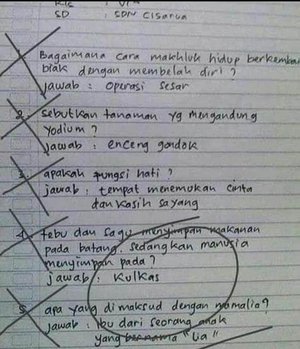 SD : SDN Cisarua
1. Bagaimana cara makhluk hidup berkemban
biak dengan membelah diri ?
Jawab : Operasi Sesar
2. Sebutkan tanaman yg mengandung
yodium ?
Jawab : enceng gondok
3. apakah fungsi hati ?
jawab : tempat menemukan cinta
dan kasih sayang
4. tebu dan sagu menyimpan makanan
pada batang, sedangkan manusia
menyimpan pada ?
jawab : Kulkas
5. apa yang dimaksud dengan mamalia?
Jawab : Ibu dari seorang anak
yang bernama "Lia"